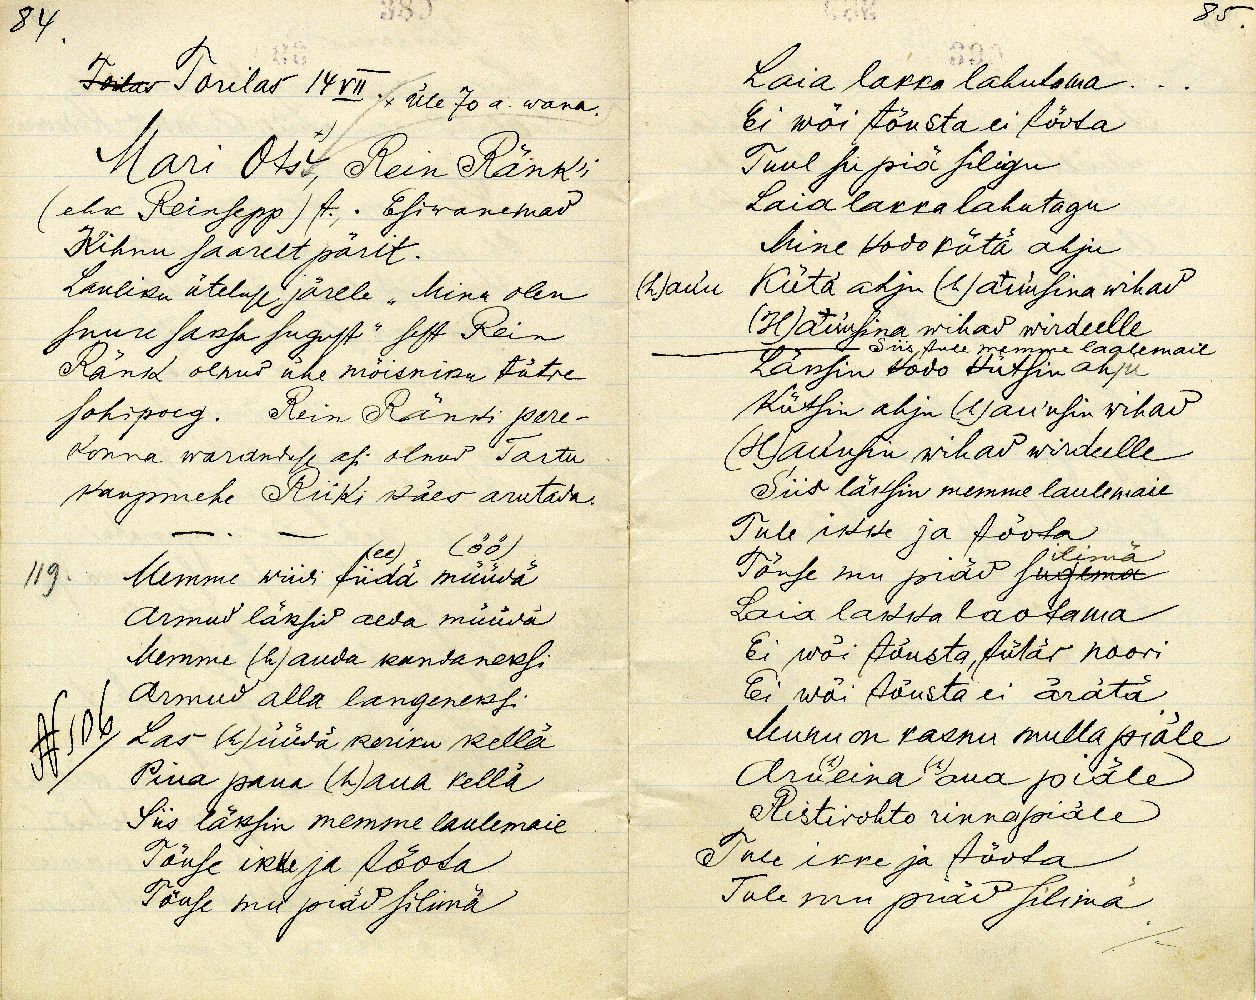 84.
Toilas Torilas 14 VII. x Üle 70 a. wana.
Mari Ots x), Rein Ränk'i
(ehk Reinsepp) t., . Esiwanemad
Kihnu saarelt pärit.
Lauliku üteluse järele „Minu olen
suure saksa sugust" sest Rein
Ränk olnud ühe mõisniku tütre
sohipoeg. Rein Ränki pere-
konna waranduse asi olnud Tartu
kaupmehe Riiki käes arutada.
119. Memme wiidi tiidä (ee) müüdä (öö)
Armud läksid aeda müüdä
Memme (h)auda kandaneksi
Armud alla langeneksi
№ 106
Las (h)üüdä keriku kellä
Pina pana (h)aua kellä
Siis läksin memme laulemaie
Tõuse ikke ja tõota
Tõuse mu piäd silimä
85.
Laia lakka lahutama . . .
Ei wõi tõusta ei tõota
Tuul su piä siligu
Laia lakka lahutagu
Mine kodo kütä ahju
(h)auu Kütä ahju (h)auusina wihad
(H)auusina wihad wirdeelle
Siis tule memme laulemaie
Läksin kodo kütsin ahju
Kütsin ahju (h)au'usin wihad
(H)au'usin wihad wirdeelle
Siis läksin memme laulemaie
Tule ikke ja tõota
Tõuse mu piäd sugema silimä
Laia lakka laotama
Ei wõi tõusta, tütär noori
Ei wõi tõusta ei ärätä
Munu on kasnu mulla piäle
Aru(h)eina (h)aua piäle
Ristirohto rinna piäle
Tule ikke ja tõota
Tule mu piäd silimä